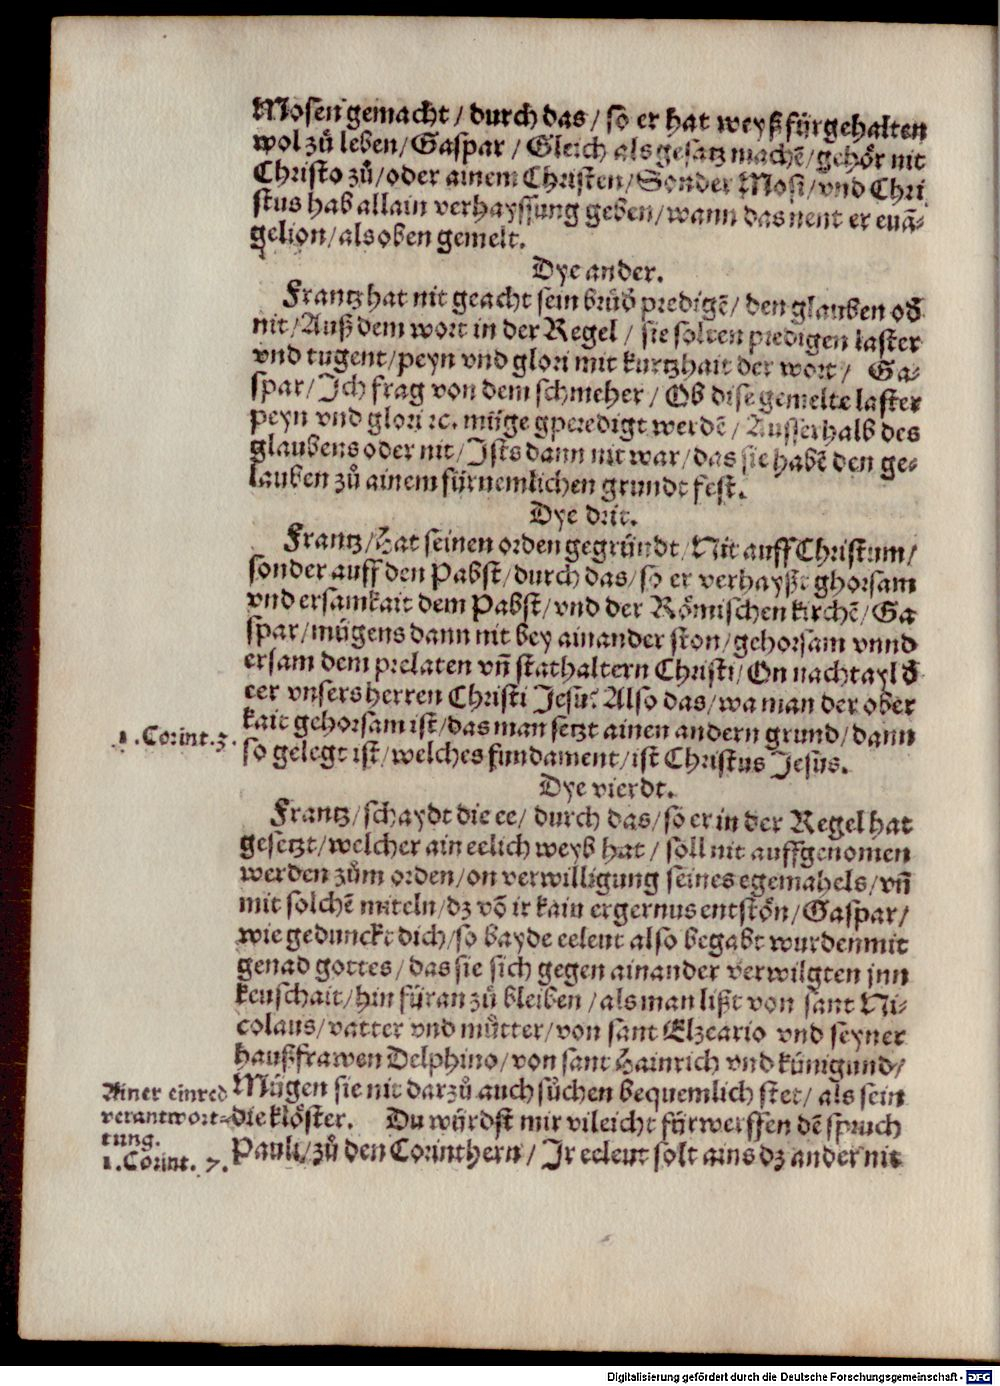 Mosen gemacht / durch das / so er hat weyß fürgehalten
wol zů leben / Gaspar / Gleich als gesatz machē / gehör nit
Christo zů / oder ainem Christen / Sonder Mosi / vnd Chri
stus hab allain verhayssung geben / wann das nent er euā-
gelion / als oben gemelt.
Dye ander.
Frantz hat nit geacht sein brůd predigē / den glauben od
nit / Auß dem wort in der Regel / sie solten predigen laster
vnd tugent / peyn vnd glori mit kurtzhait der wort / Ga-
spar / Ich frag von dem schmeher / Ob dise gemelte laster
peyn vnd glori ⁊c. müge gperedigt werdē / Ausserhalb des
glaubens oder nit / Ists dann nit war / das sie habē den ge-
lauben zů ainem fürnemlichen grundt fest.
Dye drit.
Frantz / Hat seinen orden gegründt / Nit auff Christum /
sonder auff den Pabst / durch das / so er verhayßt ghorsam
vnd ersamkait dem Pabst / vnd der Römischen kirchē / Ga
spar / mügens dann nit bey ainander ston / gehorsam vnnd
ersam dem prelaten vñ stathaltern Christi / On nachtayl d
eer vnsers herren Christi Jesu? Also das / wa man der ober
kait gehorsam ist / das man setzt ainen andern grund / dann
1. Corint. 3.
so gelegt ist / welches fundament / ist Christus Jesus.
Dye vierdt.
Frantz / schaydt die ee / durch das / so er in der Regel hat
gesetzt / welcher ain eelich weyb hat / soll nit auffgenomen
werden zům orden / on verwilligung seines egemahels / vñ
mit solchē miteln / dz vō ir kain ergernus entstön / Gaspar /
wie gedunckt dich / so bayde eeleut also begabt wurden mit
genad gottes / das sie sich gegen ainander verwilgten jnn
keuschait / hin füran zů bleiben / als man lißt von sant Ni-
colaus / vatter vnd můtter / von sant Elzeario vnd seyner
haußfrawen Delphino / von sant Hainrich vnd künigund /
Mügen sie nit darzů auch sůchen bequemlich stet / als sein
die klöster. Du würdst mir vileicht fürwerffen dē spruch
Pauli / zů den Corinthern / Ir eeleut solt ains dz ander nit
Ainer einred
verantwort-
tung.
1. Corint. 7.
Digitalisierung gefördert durch die Deutsche Forschungsgemeinschaft - DFG